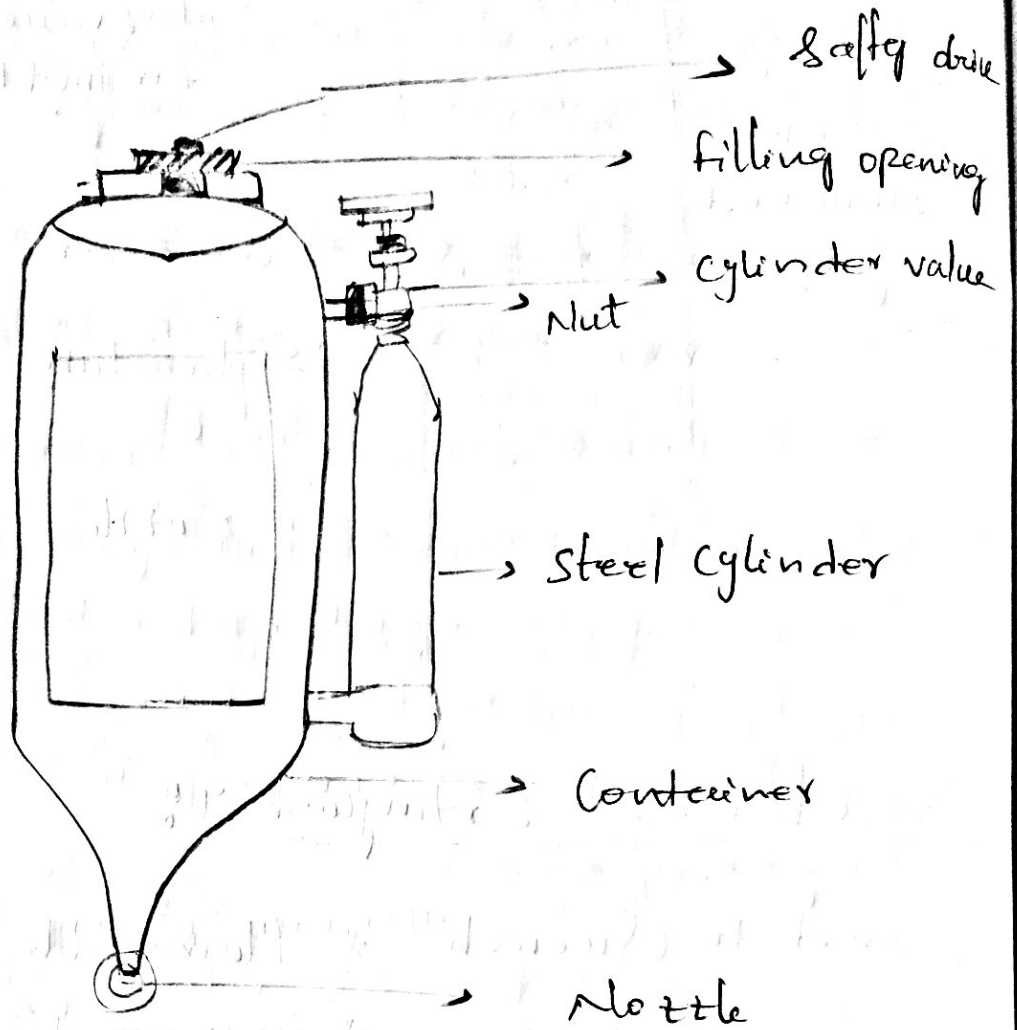 Safty drive
Filling opening
cylinder value
Nut
Steel Cylinder
Container
Nozzle